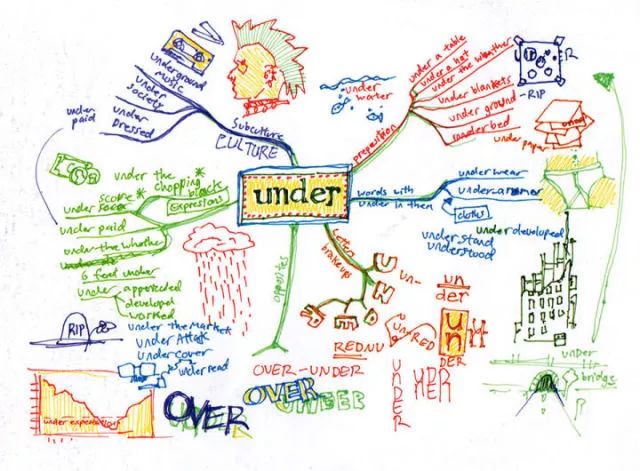 underground
music
under
society
under
Dressed
under
paid
Subculture
CULTURE
under
water
preposition
under a table
under a hat
under the weather
under blankets
under ground
-RIP
under bed
under paper
under
words with
under in them
under wear
under-armor
cloths
under developed
under stand
understood
under the
chopping
block
Expressions
under score
under paid
under the whether
6 feet under
under
appreciated
developed
worked
RIP
under the Market
under Attack
undercover
under read
under expectations
opposites
OVER-UNDER
OVER
OVER
UNDER
letter
breakup
U
N
D
E
R
un-
REDNU
un-RED
un
der
un
DER
UNDER
under
bridge